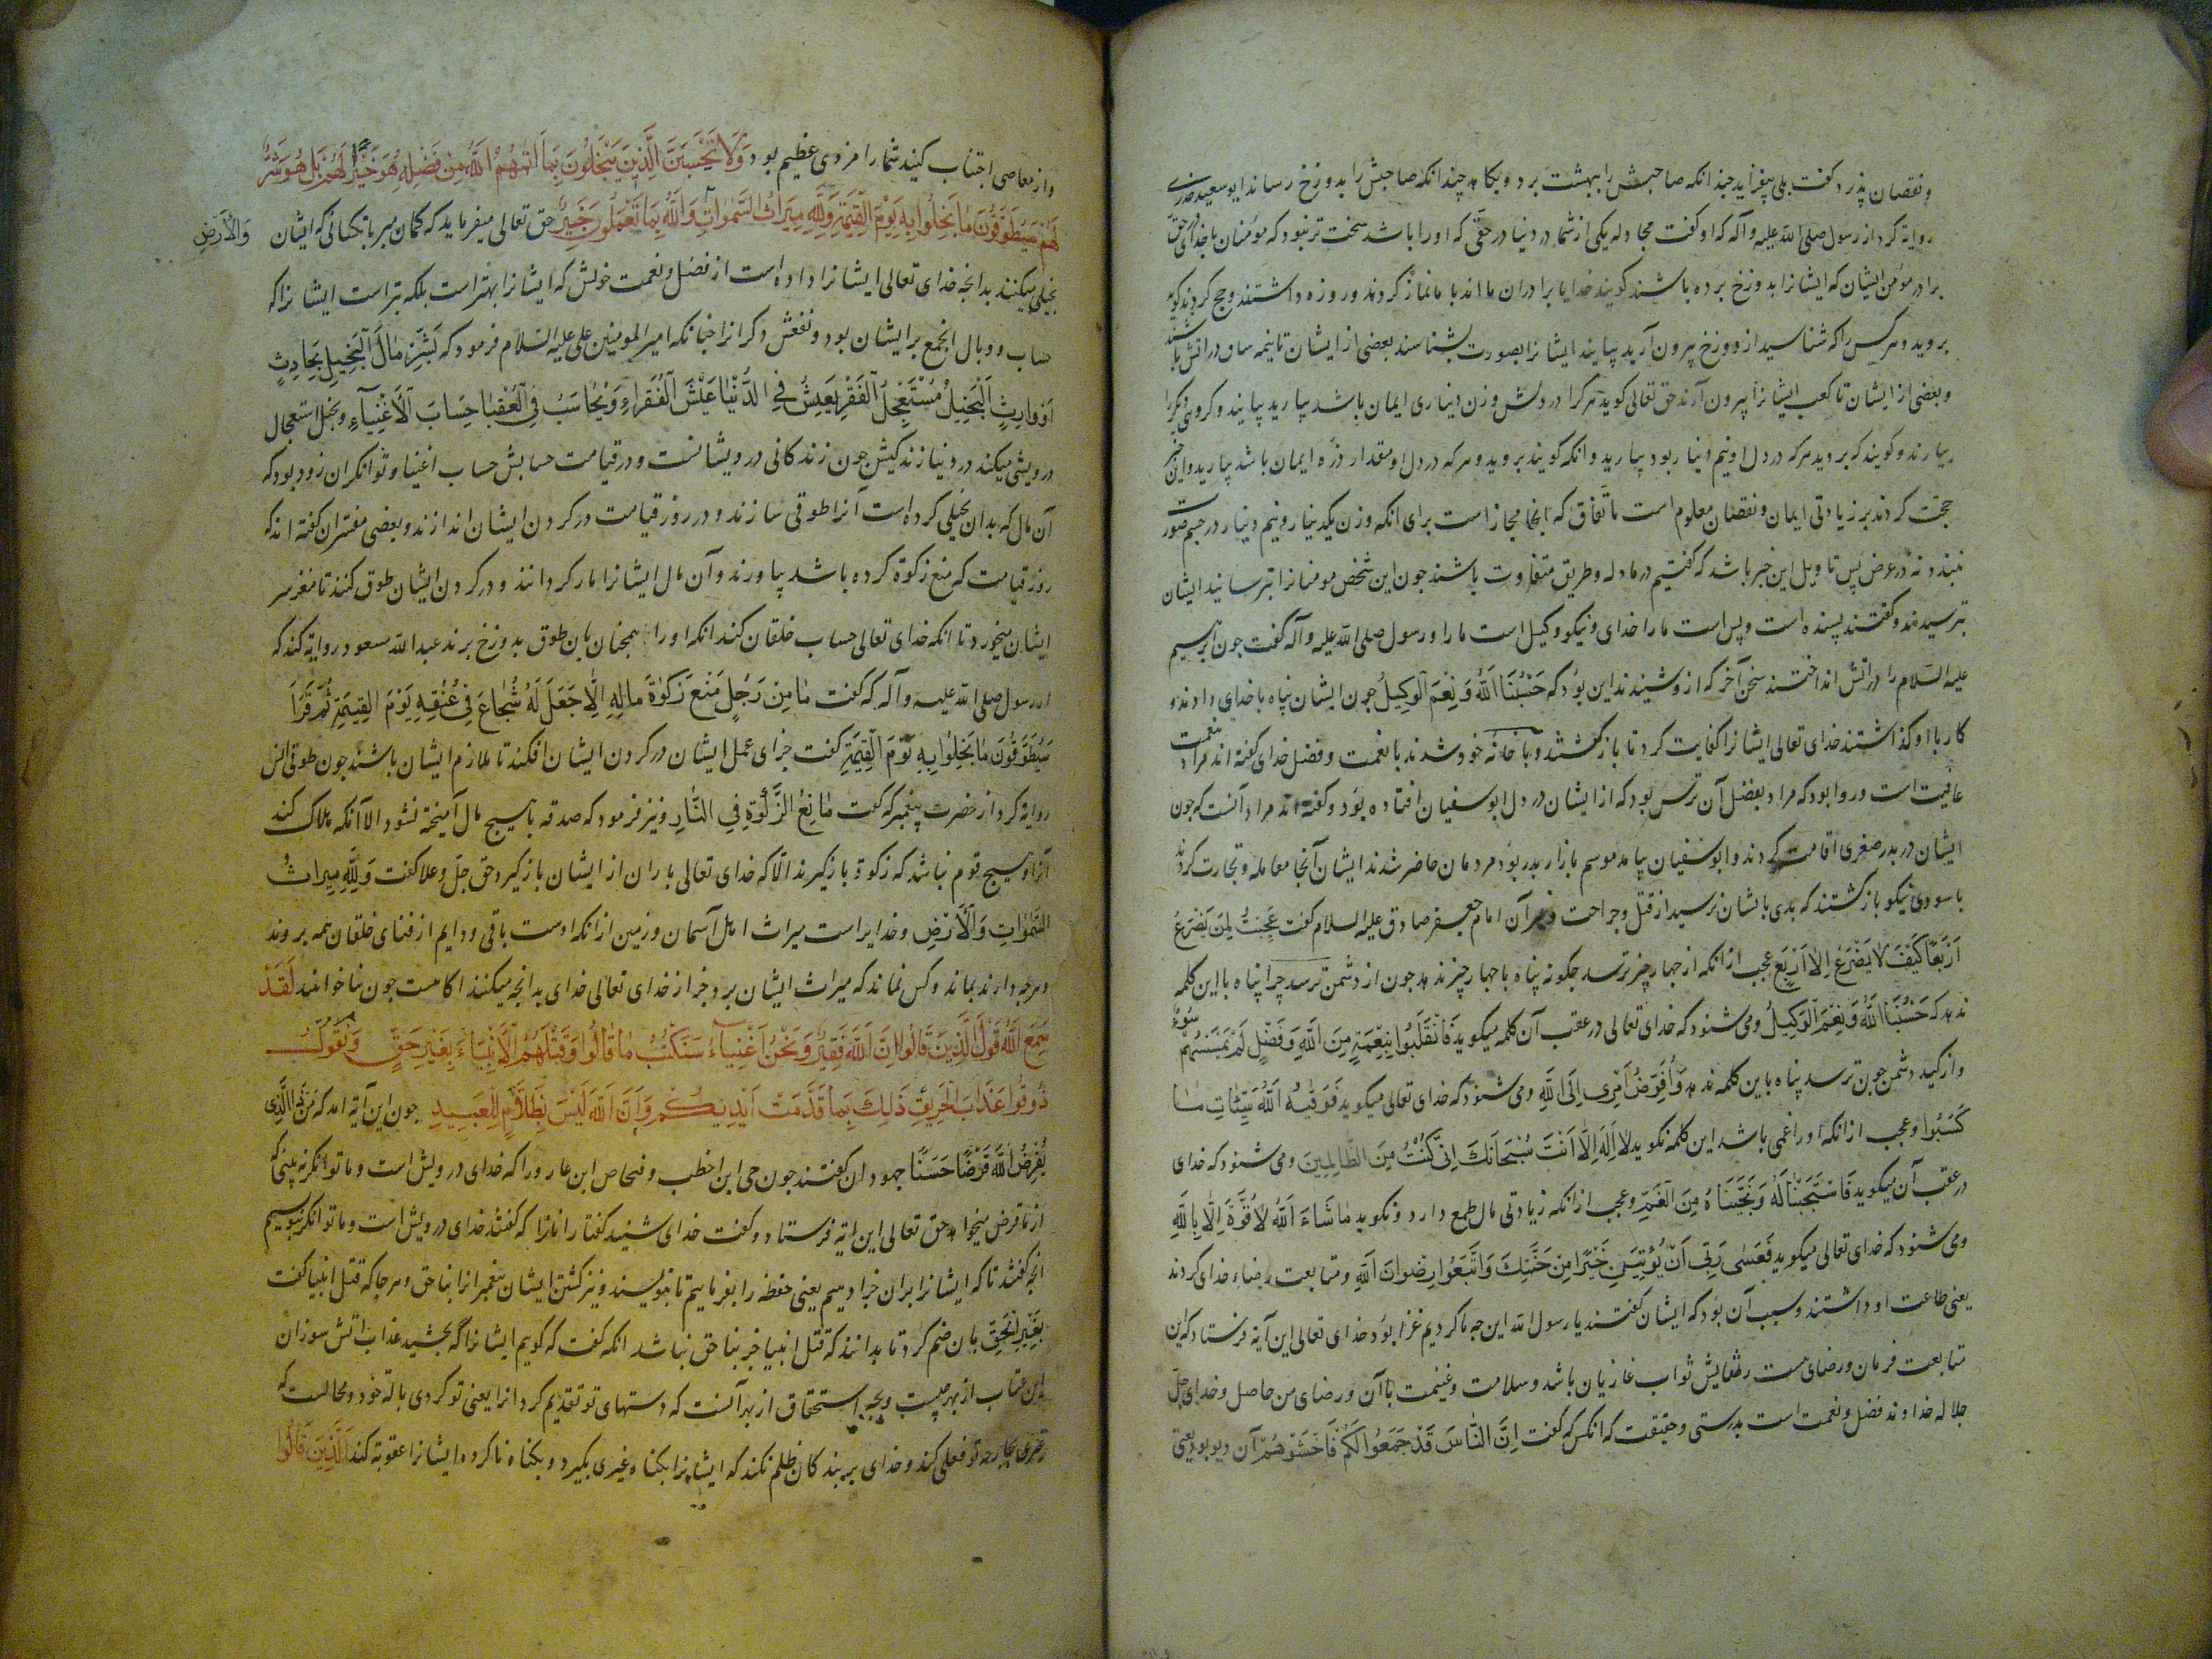 و نقصان پذیرد گفت بلی بیفزاید چندانکه صاحبش را ببهشت برد و بکاهد چندانکه صاحبش را بدوزخ رساند ابوسعید خدری
روایة کرد از رسول صلی الله علیه و آله که او گفت مجادله یکی از شما در دنیا در حقی که او را باشد سخت تر نبود که مؤمنان با خدای در حق
برادر مؤمن ایشان که ایشانرا بدوزخ برده باشند گویند خدایا برادران ما اند با ما نماز کردند و روزه داشتند و حج کردند گوید
بروید و هرکس را که شناسید از دوزخ بیرون آرید بیایند ایشانرا بصورت بشناسند بعضی از ایشان تا نیمه ساق در آتش باشند
و بعضی از ایشان تا کعب ایشانرا بیرون آرند حق تعالی گوید هر کرا در دلش وزن دیناری ایمان باشد بیارید بیایند و گروهی دیگر را
بیارند و گویند که بروید هرکه در دل او نیم دینار بود بیارید و انکه گویند بروید و هرکه در دل او مقدار ذره ایمان باشد بیارید و این خبر
حجت کردند بر زیادتی ایمان و نقصان معلوم است باتفاق که اینجا مجاز است برای انکه وزن یکدینار و نیم دینار در جسم صورت
نبندد نه در عرض پس تاویل این خبر باشد که گفتیم در ما دله و طریق متفاوت باشند چون این شخص مومنانرا بترسانید ایشان
بترسیدند و گفتند پسنده است و بس است ما را خدای و نیکو وکیل است ما را و رسول صلی الله علیه و آله گفت چون ابرهیم
علیه السلام را در آتش انداختند سخن آخر که از و شنیدند این بود که حَسْبُنَا اللَّهُ وَ نِعْمَ الْوَكِيلُ چون ایشان پناه با خدای دادند و
کار با او گذاشتند خدای تعالی ایشانرا کفایت کرد تا باز گشتند و با خانه خود شدند با نعمت و فضل خدای گفته اند مراد بنعمت
عافیت است و روا بود که مراد بفضل آن ترس بود که از ایشان در دل ابوسفیان افتاده بود و گفته اند مراد آنست که چون
ایشان در بدر صغری اقامت کردند و ابوسفیان بیامد موسم بازار بدر بود مردمان حاضر شدند ایشان آنجا معامله و تجارت کردند
با سودی نیکو باز گشتند که بدی بایشان نرسید از قتل و جراحت و غیر آن امام جعفر صادق علیه السلام گفت عَجِبْتُ لِمَنْ يَفْزَعُ
اَرْبَعًا كَيْفَ لَا يَفْزَعُ اِلَا اَرْبَعٍ عجب از انکه از چهار چیز ترسد چگونه پناه با چهار چیز ندهد چون از دشمن ترسد چرا پناه با این کلمه
ندهد که حَسْبُنَا اللَّهُ وَ نِعْمَ الْوَكِيلُ و می شنود که خدای تعالی در عقب آن کلمه میگوید فَانْقَلَبُوا بِنِعْمَةٍ مِنَ اللَّهِ وَ فَضْلٍ لَمْ يَمْسَسْهُمْ سُوءٌ
و از کید دشمن چون ترسد پناه با این کلمه ندهد وَ اُفَوِّضُ اَمْرِي اِلَى اللَّهِ و می شنود که خدای تعالی میگوید فَوَقٰيهُ اللَّهُ سَيِّئَاتِ مَا
كَسَبُوا و عجب از انکه او را غمی باشد این کلمه نگوید لَا اِلَهَ اِلَّا اَنْتَ سُبْحَانَكَ اِنِّي كُنْتُ مِنَ الظَّالِمِينَ و می شنود که خدای
در عقب آن میگوید فَاسْتَجَبْنَا لَهُ وَ نَجَّيْنَاهُ مِنَ الْغَمِّ و عجب از انکه زیادتی مال طمع دارد و نگوید مَا شَاءَ اللَّهُ لَا قُوَّةَ اِلَّا بِاللَّهِ
و می شنود که خدای تعالی میگوید فَعَسَى رَبِّي اَنْ يُؤْتِيَنِ خَيْرًا مِنْ جَنَّتِكَ وَ اتَّبَعُوا رِضْوَانَ اللَّهِ و متابعت رضاء خدای کردند
یعنی طاعت او داشتند و سبب آن بود که ایشان گفتند یا رسول الله این چه ما کردیم غزا بود خدای تعالی این آیة فرستاد که این
متابعت فرمان و رضای منست و ثوابش ثواب غازیان باشد و سلامت و غنیمت با آن و رضای من حاصل و خدای جل
جلاله خداوند فضل و نعمت است بدرستی و حقیقت که انکس که گفت اِنَّ النَّاسَ قَدْ جَمَعُوا لَكُمْ فَاخْشَوْهُمْ آن دیو بود یعنی
و از معاصی اجتناب کنید شما را مزدی عظیم بود وَ لَا تَحْسَبَنَّ الَّذِينَ يَبْخَلُونَ بِمَا اٰتٰيهُمُ اللَّهُ مِنْ فَضْلِهِ هُوَ خَيْرًا لَهُمْ بَلْ هُوَ شَرٌّ
لَهُمْ سَيُطَوَّقُونَ مَا بَخِلُوا بِهِ يَوْمَ الْقِيٰمَةِ وَ لِلَّهِ مِيرَاثُ السَّمٰوَاتِ وَ اللَّهُ بِمَا تَعْمَلُونَ خَبِيرٌ حق تعالی میفرماید که گمان مبر یا بکسانی که ایشان
وَالْاَرْضِ
بخیلی میکنند بدانچه خدای تعالی ایشانرا داده است از فضل و نعمت خویش که ایشانرا بهتر است بلکه بتر است ایشانرا که
حساب و وبال انجمع بر ایشان بود و نفعش دگرانرا چنانکه امیر المومنین علی علیه السلام فرمود که بَشِّرْ مَالَ الْبَخِيلِ بِحَادِثٍ
اَوْ وَارِثٍ اَلْبَخِيلُ مُسْتَعْجِلُ الْفَقْرِ يَعِيشُ فِي الدُّنْيَا عَيْشَ الْفُقَرَاءِ وَ يُحَاسَبُ فِي الْعُقْبَا حِسَابَ الْاَغْنِيَآءِ و بخیل استعجال
درویشی میکند در دنیا زندگیش چون زندگانی درویشانست و در قیامت حسابش حساب اغنیا و توانگران زود بود که
آن مال که بدان بخیلی کرده است آنرا طوقی سازند و در روز قیامت در گردن ایشان اندازند و بعضی مفسران گفته اند که
روز قیامت که منع زکوة کرده باشد بیاورند و آن مال ایشانرا مار گردانند و در گردن ایشان طوق کنند تا مغز سر
ایشان میخورد تا انکه خدای تعالی حساب خلقان کند انکه او را همچنان بان طوق بدوزخ برند عبدالله مسعود روایة کند که
از رسول صلی الله علیه و آله که گفت مَا مِنْ رَجُلٍ مَنَعَ زَكٰوةَ مَالِهِ اِلَّا جَعَلَ لَهُ شُجَاعَ فِي عُنُقِهِ يَوْمَ الْقِيٰمَةِ ثُمَّ قَرَاَ
سَيُطَوَّقُونَ مَا بَخِلُوا بِهِ يَوْمَ الْقِيٰمَةِ گفت جزای عمل ایشان در گردن ایشان افکند تا ملازم ایشان باشند چون طوق انس
روایة کرد از حضرت پیغمبر که گفت مَانِعُ الزَّكٰوةِ فِي النَّارِ و نیز فرمود که صدقه با هیچ مال آمیخته نشود الا آنکه هلاک کند
آنرا و هیچ قوم نباشد که زکوة باز گیرند الا که خدای تعالی باران از ایشان باز گیرد حق جل و علا گفت وَ لِلَّهِ مِيرَاثُ
السَّمٰوَاتِ وَ الْاَرْضِ و خدایراست میراث اهل آسمان و زمین از انکه اوست باقی و دایم از فنای خلقان همه بروند
و هرچه دارند بماند و کس نماند که میراث ایشان برد جز از خدای تعالی خدای بدانچه میکنند آگاهست چون بتا خوانند لَقَدْ
سَمِعَ اللَّهُ قَوْلَ الَّذِينَ قَالُوا اِنَّ اللَّهَ فَقِيرٌ وَ نَحْنُ اَغْنِيَآءُ سَنَكْتُبُ مَا قَالُوا وَ قَتْلَهُمُ الْاَنْبِيَاءَ بِغَيْرِ حَقٍّ وَ نَقُولُ
ذُوقُوا عَذَابَ الْحَرِيقِ ذَلِكَ بِمَا قَدَّمَتْ اَيْدِيكُمْ وَ اَنَّ اللَّهَ لَيْسَ بِظَلَّامٍ لِلْعَبِيدِ چون این آیة آمد که مَنْ ذَا الَّذِي
يُقْرِضُ اللَّهَ قَرْضًا حَسَنًا جهودان گفتند چون حی ابن اخطب و فنحاص ابن عازورا که خدای درویش است و ما توانگر نه بینی که
از ما قرض میخواهد حق تعالی این آیة فرستاد و گفت خدای شنید گفتار انانرا که گفتند خدای درویش است و ما توانگر بنویسیم
انچه گفتند تا که ایشانرا بران جزا دهیم یعنی حفظه را بفرماییم تا بنویسند و نیز کشتن ایشان پیغمبرانرا بناحق و هرجا که قتل انبیا گفت
بِغَيْرِ الْحَقِّ بان ضم کرد تا بدانند که قتل انبیا جز بناحق نباشد انکه گفت که گویم ایشانرا که بچشید عذاب آتش سوزان
این عتاب از بهر چیست و بچه استحقاق از بهر آنست که دستهای تو تقدیم کرد انرا یعنی تو کردی بآلة خود و محالست که
بجارحه تو فعلی کند و خدای بر بندگان ظلم نکند که ایشانرا بگناه غیری بگیرد و بگناه ناکرده ایشانرا عقوبة کند اَلَّذِينَ قَالُوا